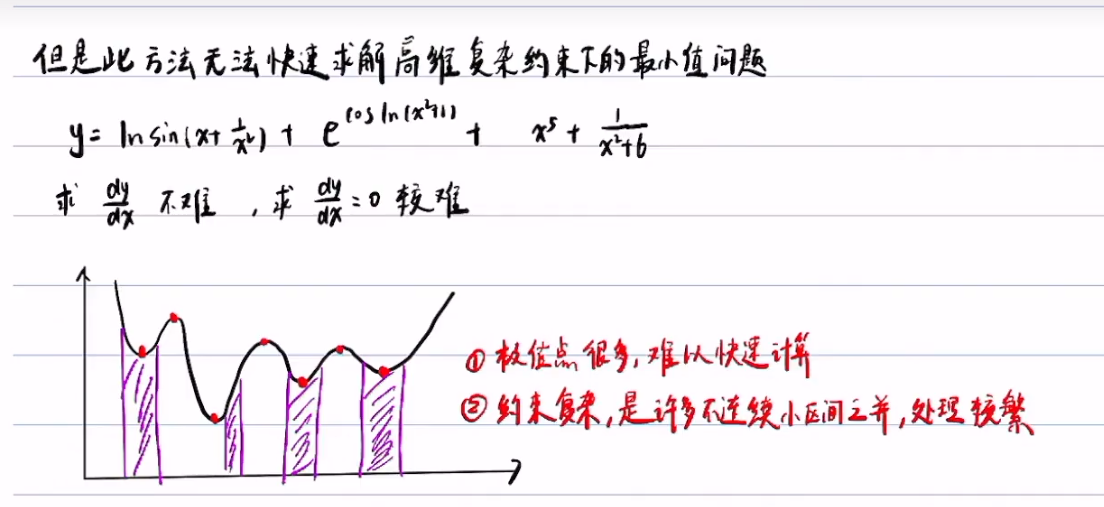 但是此方法无法快速求解高维复杂约束下的最小值问题
y = ln sin(x + 1/x²) + e^(cos ln(x²+1)) + x⁵ + 1/(x²+6)
求 dy/dx 不难，求 dy/dx = 0 较难
① 极值点很多，难以快速计算
② 约束复杂，是许多不连续小区间之并，处理较繁